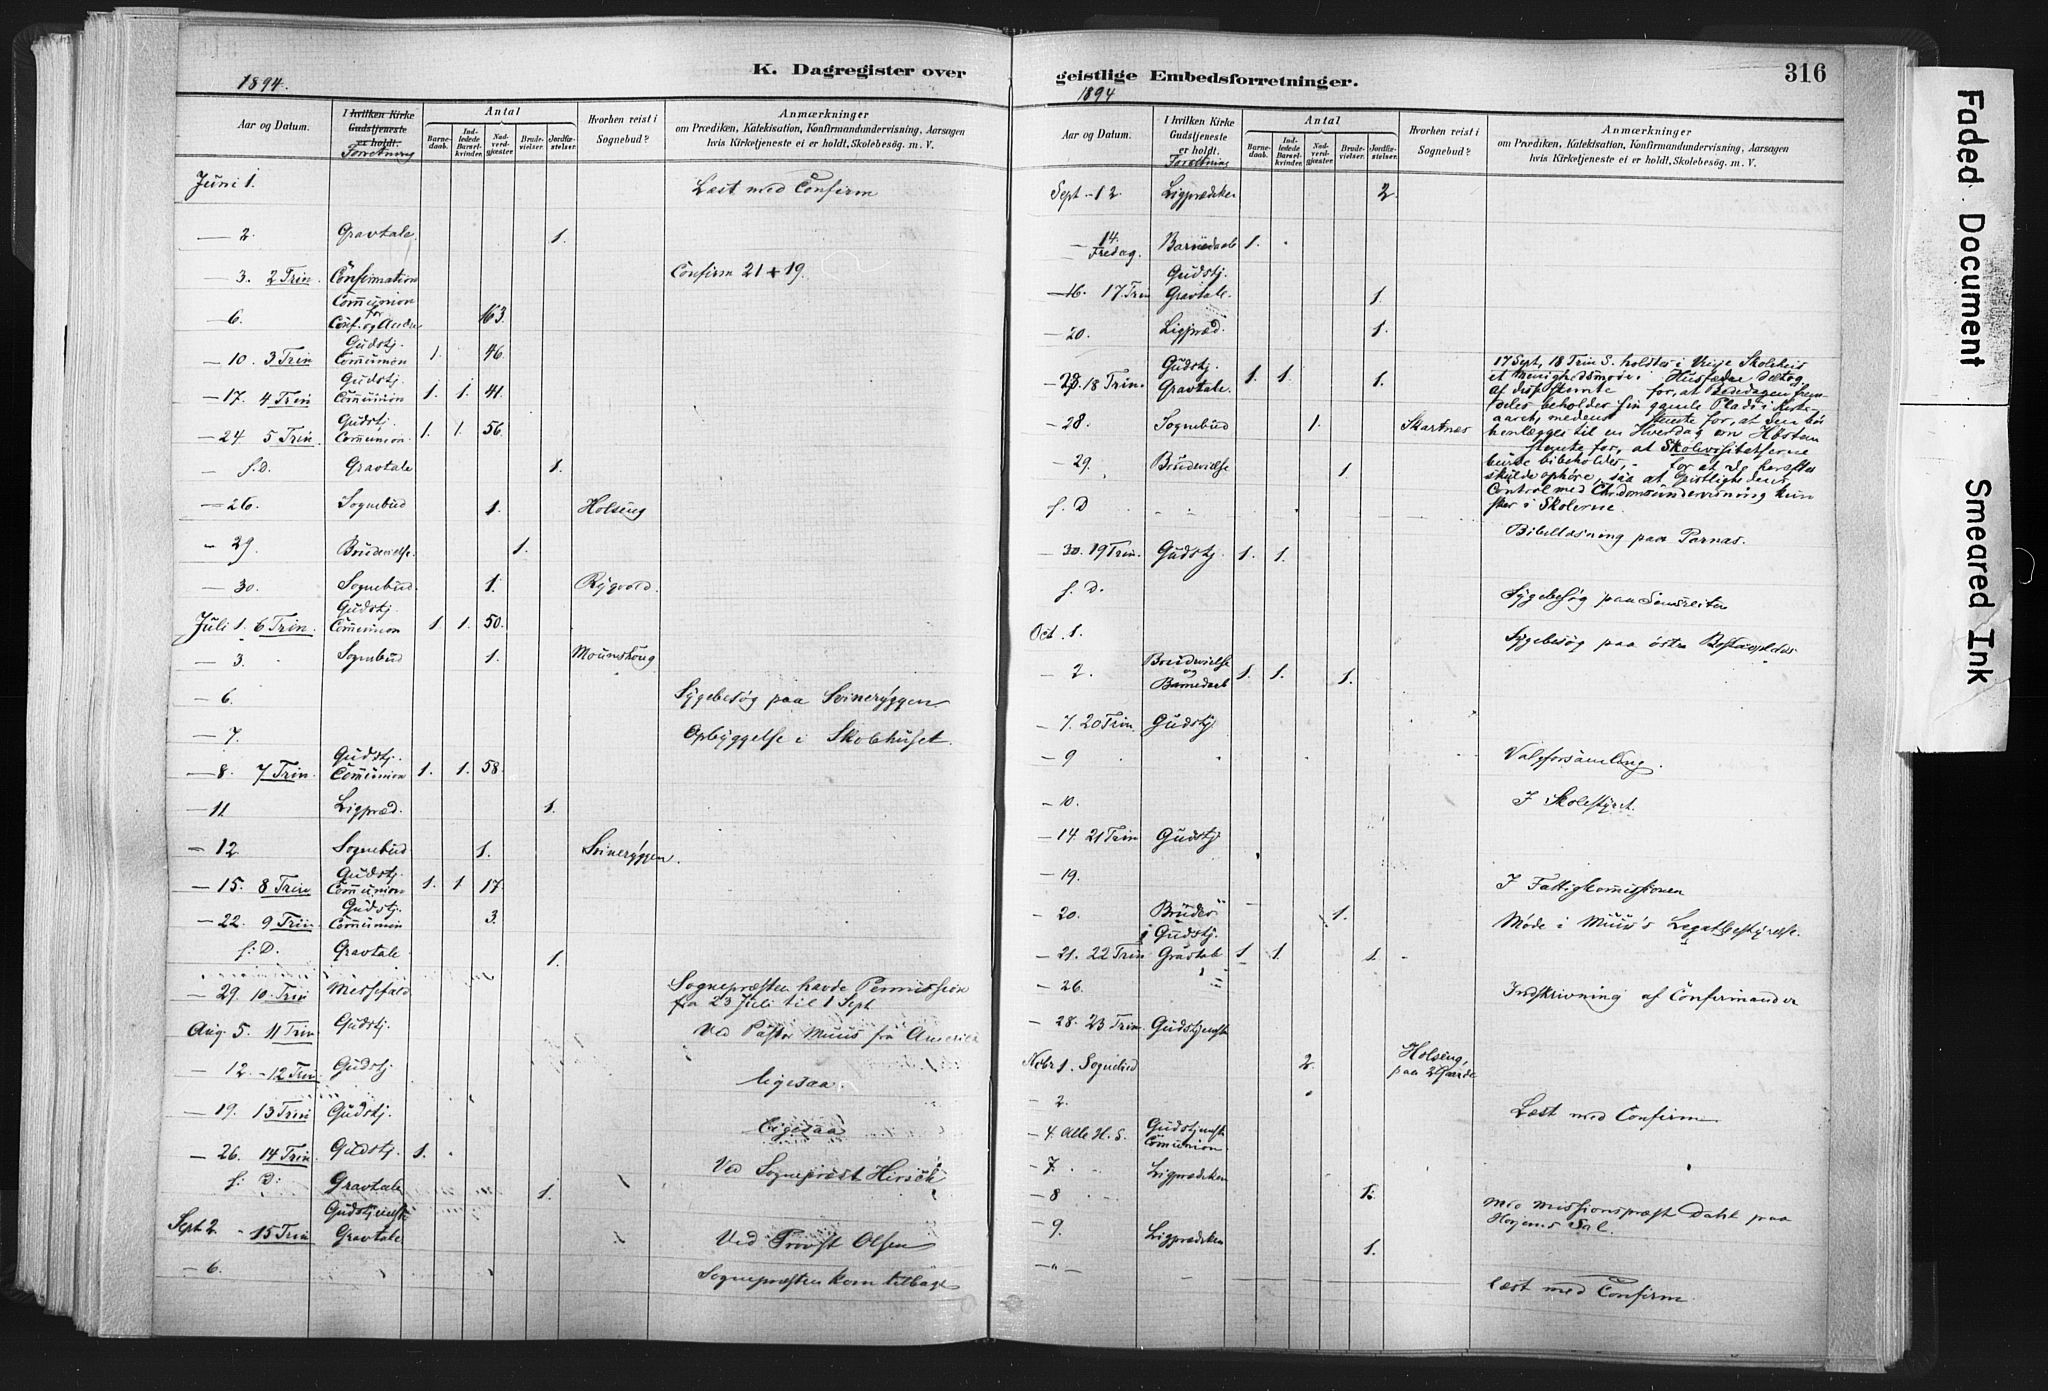 1894.
K. Dagregister over
Aar og Datum.
I hvilken Kirke Gudstjeneste er holdt.
Forretning
Antal
Barnedaab.
Indledede Barselkvinder.
Nadverdgjester
Brudevielser.
Jordfæstelser.
Hvorhen reist i Sognebud?
Anmærkninger
om Prædiken, Katekisation, Konfirmandundervisning, Aarsagen
hvis Kirketjeneste ei er holdt, Skolebesøg. m. V.
Juni 1. Læst med Confirm
— 2. Gravtale. 1.
— 3. 2 Trin. Confirmation Confirm 21 + 19.
— 6. Communion for Conf. og Andre 163.
— 10. 3 Trin Gudstj. Communion 1. 46.
— 17. 4 Trin Gudstj. Communion 1. 1. 41.
— 24 5 Trin. Gudstj. Communion 1. 1. 56.
s. D. Gravtale 1.
— 26. Sognebud 1. Holseng
- 29. Brudevielse. 1.
— 30. Sognebud. 1. Rygvold.
Juli 1. 6 Trin. Gudstj. Communion 1 1. 50.
— 3. Sognebud 1.
— 6. Sygebesøg paa Svineryggen
— 7. Opbyggelse i Skolehuset.
— 8. 7 Trin. Gudstj. Communion 1. 1. 58.
— 11 Ligpræd. 1.
— 12 Sognebud 1. Svineryggen.
— 15. 8 Trin Gudstj. Communion 1. 1. 17.
— 22. 9 Trin Gudstj. Communion 3.
s. D. Gravtale 1.
— 29. 10 Trin Messefald Sognepræsten havde Permission
fra 23 Juli til 1 Sept
Aug. 5. 11 Trin Gudstj. Ved Pastor Muus fra Amerika
— 12. - 12 Trin Gudstj ligesaa.
— 19. 13 Trin Gudstj. Ligesaa
— 26. 14 Trin Gudstj. 1.
Ved Sognepræst Hirsch
s. D. Gravtale 1.
Sept 2 - 15 Trin Gudstjeneste Gravtale Ved Provst Olsen
— 6. Sognepræsten kom tilbage
geistlige Embedsforretninger.
316
1894
Aar og Datum.
I hvilken Kirke Gudstjeneste er holdt.
Forretning
Antal
Barnedaab.
Indledede Barselkvinder.
Nadverdgjester
Brudevielser.
Jordfæstelser.
Hvorhen reist i Sognebud?
Anmærkninger
om Prædiken, Katekisation, Konfirmandundervisning, Aarsagen
hvis Kirketjeneste ei er holdt, Skolebesøg. m. V.
Sept - 12 Ligprædiken 2.
— 14. Fredag. Barnedaab 1.
— 16. 17. Trin Gudstj. Gravtale. 1.
— 20. Ligpræd. 1.
— 23. 18 Trin. Gudstj. Gravtale. 1. 1. 1.
17 Sept, 18 Trin S. holdtes i Skolehus
et Menighedsmøde. Husfædre deltog
af disse stemte for, at Bededagen frem-
deles beholder sin gamle Plads i Kirke-
aaret, medens stemte for, at den bør
henlægges til en Hverdag om Høsten
stemte for, at Skolevisitatserne
burde bibeholdes, - for at de herefter
skulde ophøre, saa at Geistlighedens
Control med Chrdomsundervisning kun
sker i Skolerne.
— 28. Sognebud 1. Skartnes
— 29. Brudevielse 1.
s. D Bibellæsning paa Parnas.
— 30. 19 Trin. Gudstj. 1. 1.
s. D. Sygebesøg paa
Oct. 1. Sygebesøg paa østre
— 2. Brudevielse og Barnedaab 1. 1. 1.
— 7. 20 Trin. Gudstj
— 9 Valgforsamling.
— 10. I Skolestyret.
— 14 21 Trin Gudstj
— 19. I Fattigkommissionen
— 20. Brudev 1. Møde i Muus's Legatbestyrelse.
— 21. 22 Trin Gudstj. Gravtale 1 1. 1.
— 26. Indskrivning af Confirmander
— 28. 23 Trin. Gudstjeneste
Novbr 1. Sognebud 2. Holseng, paa 2 Gaarde
— 2. Læst med Confirm
— 4. Alle H. S. Gudstjeneste Communion
— 7. Ligprædiken
— 8 1. med Missionspræst Dahl paa
Sal.
— 9. Ligprædiken 1.
— " — læst med Confirm
Faded Document
Smeared Ink